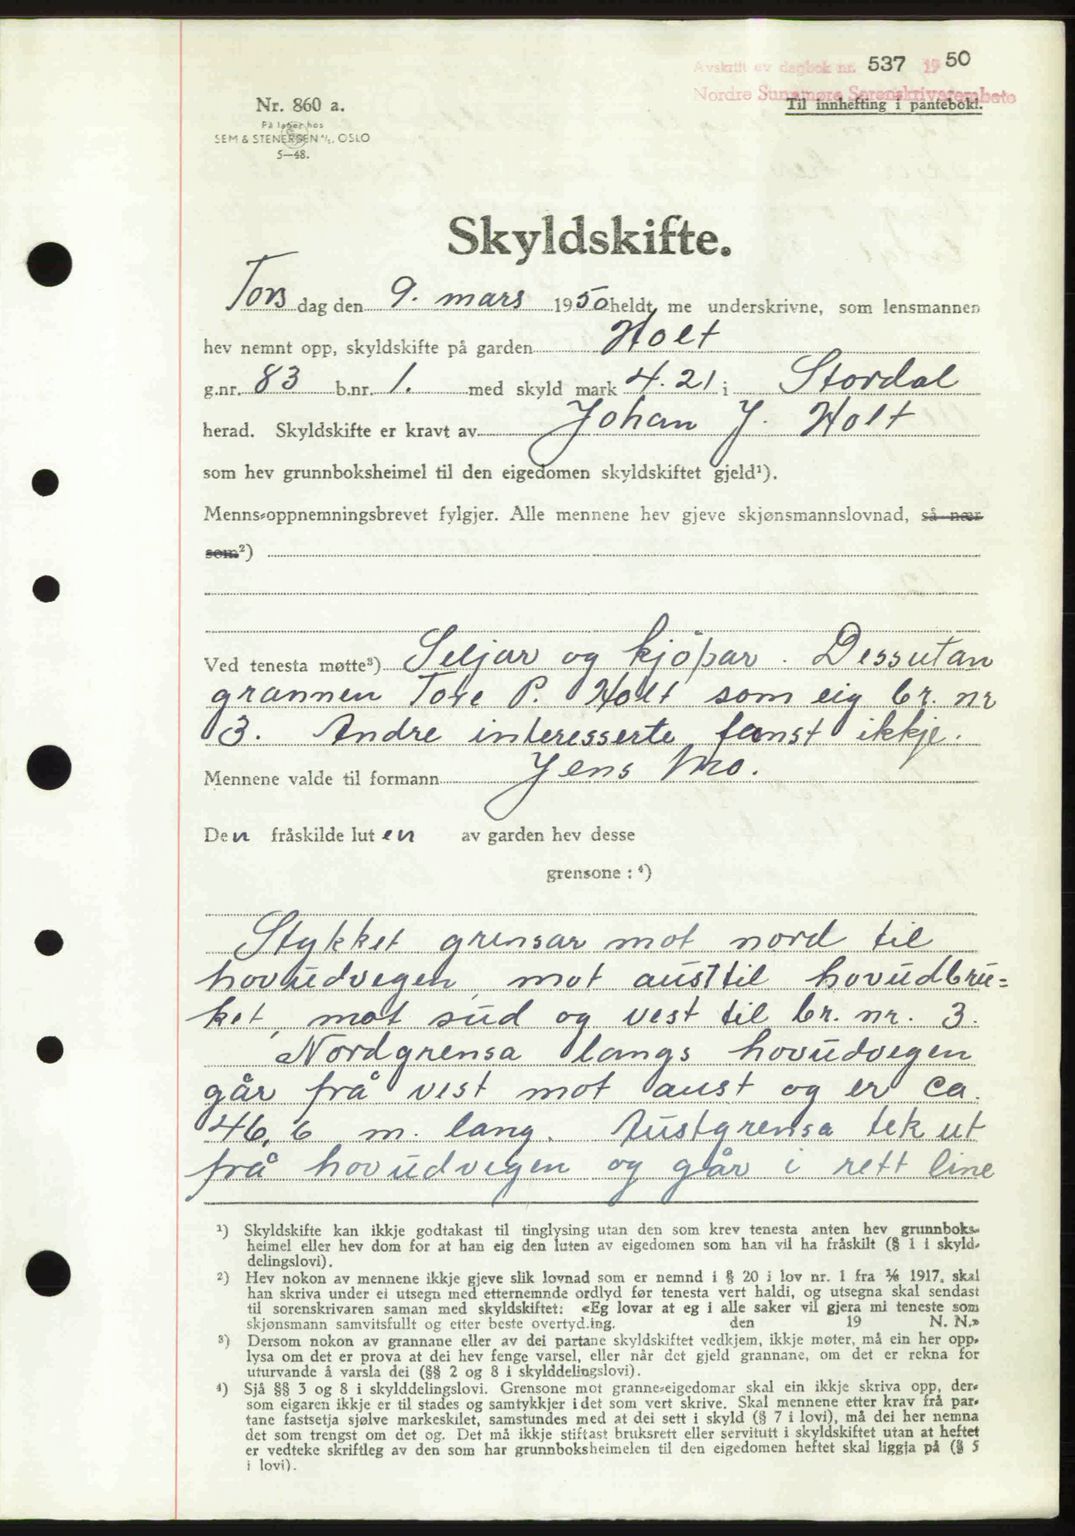 Avskrift av dagbok nr. 537 1950
Nordre Sunnmøre Sorenskrivarembete
Nr. 860 a.
Til innhefting i pantebokl.
På lager hos
SEM & STENERSEN A/S, OSLO
5—48.
Skyldskifte.
Torsdag den 9. mars 1950 heldt me underskrivne, som lensmannen
hev nemnt opp, skyldskifte på garden Holt
g.nr. 83 b.nr. 1. med skyld mark 4.21 i Stordal
herad. Skyldskifte er kravt av Johan J. Holt
som hev grunnboksheimel til den eigedomen skyldskiftet gjeld¹).
Menns-oppnemningsbrevet fylgjer. Alle mennene hev gjeve skjønsmannslovnad, så nær
som²)
Ved tenesta møtte³) Seljar og kjöpar. Dessutan
grannen Tore P. Holt som eig br. nr
3. Andre interesserte fanst ikkje.
Mennene valde til formann Jens Mo.
Den fråskilde luten av garden hev desse
grensone : ⁴)
Stykket grensar mot nord til
hovudvegen, mot aust til hovudbru=
ket, mot sud og vest til br. nr. 3.
Nordgrensa langs hovudvegen
går frå vest mot aust og er ca.
46,6 m. lang. Austgrensa tek ut
frå hovudvegen og går i rett line
¹) Skyldskifte kan ikkje godtakast til tinglysing utan den som krev tenesta anten hev grunnboks-
heimel eller hev dom for at han eig den luten av eigedomen som han vil ha fråskilt (§ 1 i skyld-
delingslovi).
²) Hev nokon av mennene ikkje gjeve slik lovnad som er nemnd i § 20 i lov nr. 1 fra 1/6 1917, skal
han skriva under ei utsegn med etternemnde ordlyd før tenesta vert haldi, og utsegna skal sendast
til sorenskrivaren saman med skyldskiftet: «Eg lovar at eg i alle saker vil gjera mi teneste som
skjønsmann samvitsfullt og etter beste overtyding. den 19 N. N.»
³) Dersom nokon av grannane eller av dei partane skyldskiftet vedkjem, ikkje møter, må ein her opp-
lysa om det er prova at dei hev fenge varsel, eller når det gjeld grannane, om det er rekna for
uturvande å varsla dei (§§ 2 og 8 i skylddelingslovi).
⁴) Sjå §§ 3 og 8 i skylddelingslovi. Grensone mot granne-eigedomar skal ein ikkje skriva opp, der-
som eigaren ikkje er til stades og samtykkjer i det som vert skrive. Skal mennene etter krav frå par-
tane fastsetja sjølve markeskilet, samstundes med at dei sett i skyld (§ 7 i lovi), må dei her nemna
det som trengst om det og. Det må ikkje stiftast bruksrett eller servitutt i skyldskiftet utan at heftet
er vedteke skriftleg av den som har grunnboksheimelen til den eigedomen heftet skal liggja på (§ 5
i lovi).